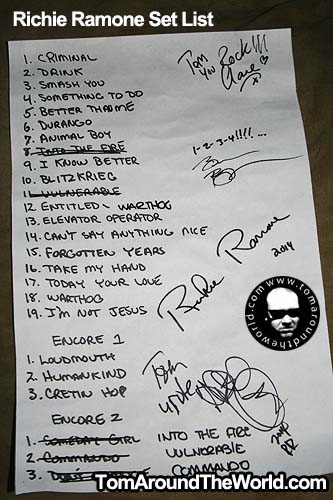 Richie Ramone Set List
1. CRIMINAL
2. DRINK
3. SMASH YOU
4. SOMETHING TO DO
5. BETTER THAN ME
6. DURANGO
7. ANIMAL BOY
8. INTO THE FIRE
9. I KNOW BETTER
10. BLITZKRIEG
11. VULNERABLE
12. ENTITLED WARTHOG
13. ELEVATOR OPERATOR
14. CAN'T SAY ANYTHING NICE
15. FORGOTTEN YEARS
16. TAKE MY HAND
17. TODAY YOUR LOVE
18. WARTHOG
19. I'M NOT JESUS
Tom
Rock!!!
1-2-3-4!!!!...
Richie Ramone
2014
www.tomaroundtheworld.com
ENCORE 1
1. LOUDMOUTH
2. HUMANKIND
3. CRETIN HOP
Tom
ENCORE 2
1. SOMEDAY GIRL INTO THE FIRE
2. COMMANDO VULNORABLE
3. COMMANDO
TomAroundTheWorld.com